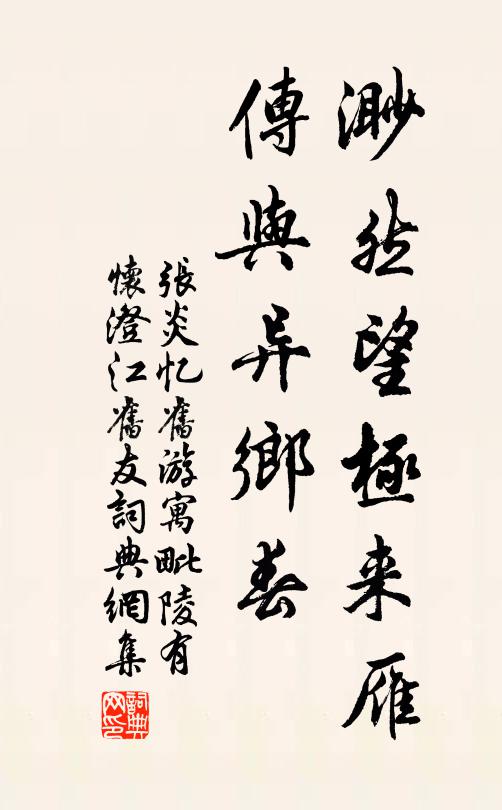 渺然望極来雁
傳與异鄉春
張炎忆舊游寓毗陵有
懷澄江舊友詞典網集
詞典
网印